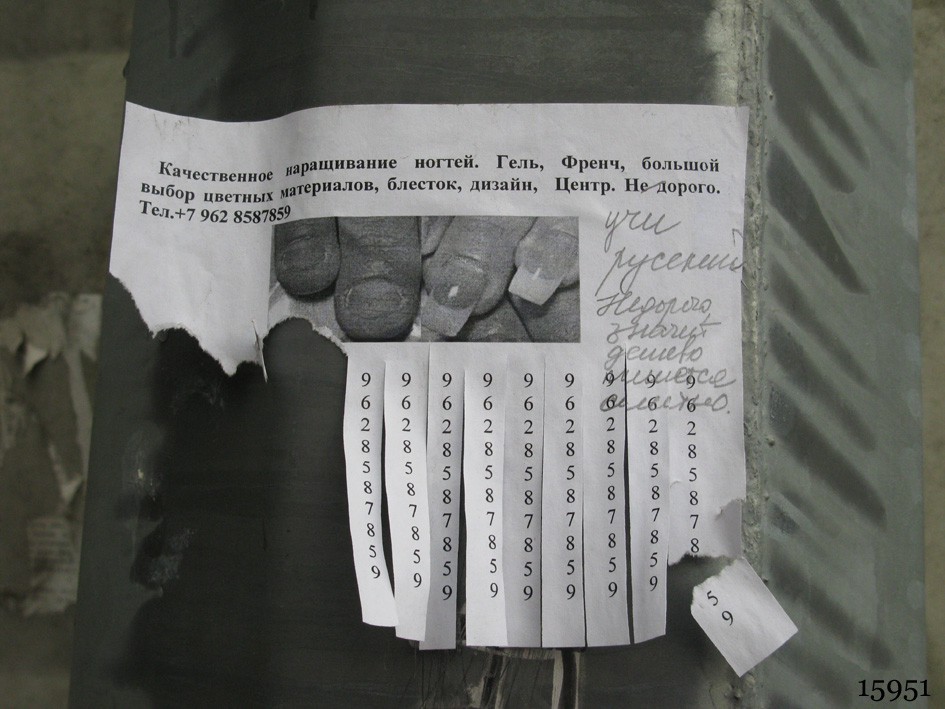 Качественное наращивание ногтей. Гель, Френч, большой
выбор цветных материалов, блесток, дизайн, Центр. Не дорого.
Тел.+7 962 8587859
учи
русский
Недорого,
значит
дешево
пишется
слитно.
9628587859
9628587859
9628587859
9628587859
9628587859
9628587859
9628587859
9628587859
96285878
59
15951